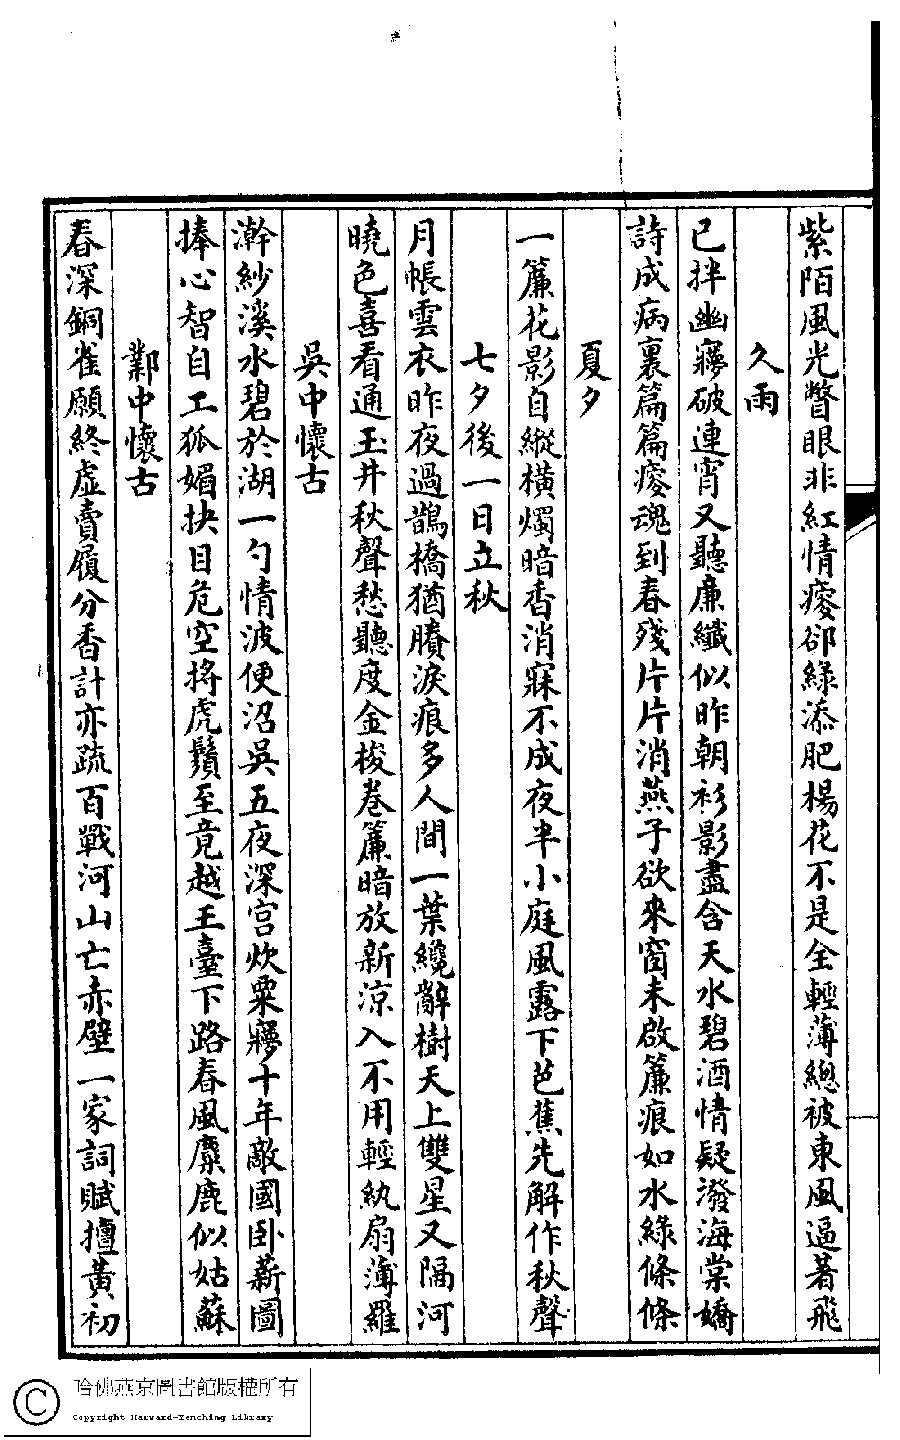 紫陌風光瞥眼非紅情瘦郤綠添肥楊花不是全輕薄總被東風逼著飛
久雨
已拌幽寢破連宵又聽廉纖似昨朝衫影盡含天水碧酒情疑潑海棠嬌
詩成病裏篇篇瘦魂到春殘片片消燕子欲來窗未啟簾痕如水綠條條
夏夕
一簾花影自縱橫燭暗香消寐不成夜半小庭風露下芭蕉先解作秋聲
七夕後一日立秋
月帳雲衣昨夜過鵲橋猶賸淚痕多人間一葉纔辭樹天上雙星又隔河
曉色喜看通玉井秋聲愁聽度金梭卷簾暗放新涼入不用輕紈扇薄羅
吳中懷古
澣紗溪水碧於湖一勺情波便沼吳五夜深宮炊粟寢十年敵國卧薪圖
捧心智自工狐媚抉目危空捋虎鬚至竟越王臺下路春風麋鹿似姑蘇
鄴中懷古
春深銅雀願終虛賣履分香計亦疏百戰河山亡赤壁一家詞賦擅黃初
哈佛燕京圖書館版權所有
Copyright Harvard-Yenching Library